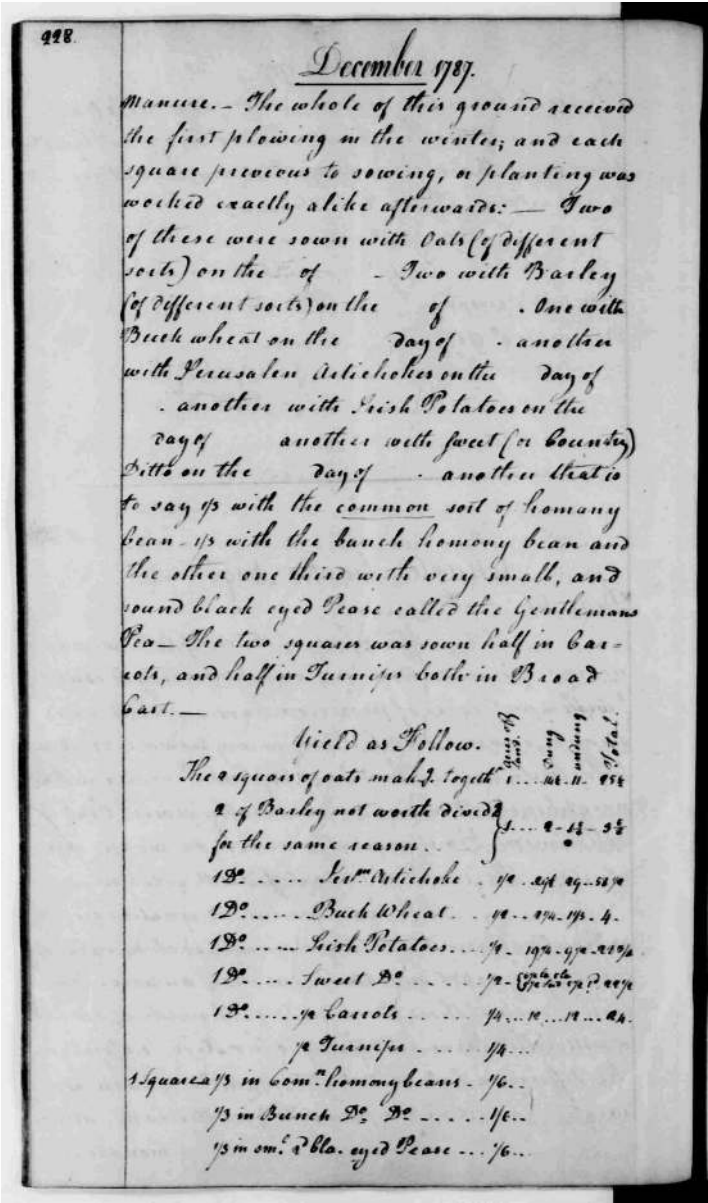 228.
December 1787.
Manure. – The whole of this ground received
the first plowing in the winter; and each
square previous to sowing, or planting was
worked exactly alike afterwards: — Two
of these were sown with Oats (of different
sorts) on the of – Two with Barley
(of different sorts) on the of . One with
Buck wheat on the day of . another
with Jerusalen Artichokes on the day of
. another with Irish Potatoes on the
day of another with Sweet (or Country)
Ditto on the day of . another that is
to say 1/3 with the common sort of homany
bean – 1/3 with the bunch homony bean and
the other one third with very small, and
sound black eyed Pease called the Gentlemans
Pea — The two squares was sown half in Car=
rots, and half in Turnips both in Broad
Cast. —
Yield as Follow. Acres of Land. Dung undung Total.
The 2 squars of oats mak.g togeth 1 .... 11
2 of Barley not worth divid.g
for the same reason. 1 .... 2
1 Do. .... Jer.m Artichoke . 1/2 . 29
1 Do. ..... Buck Wheat . 1/2 .. 4.
1 Do. .... Irish Potatoes .... 1/2
1 Do. .... Sweet Do. ..... 1/2
1 Do. .... 1/2 Carrots ..... 1/4 ... 12 ... 12 ... 24.
1/2 Turnips ... 1/4 ...
1 Square a 1/3 in Com.n homony beans . 1/6 ..
1/3 in Bunch Do. Do. ..... 1/6 ..
1/3 in sm.l rd bla. eyed Pease ... 1/6 ...